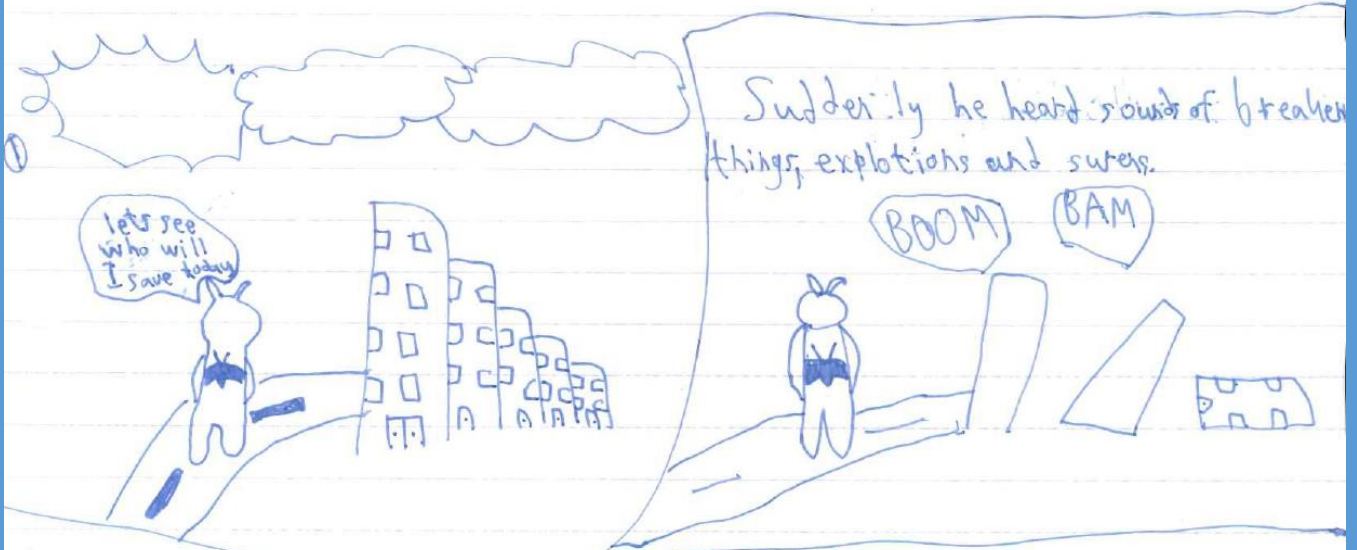 ①
lets see
who will
I save today
Suddenly he heard sounds of
things, explotions and
BOOM
BAM